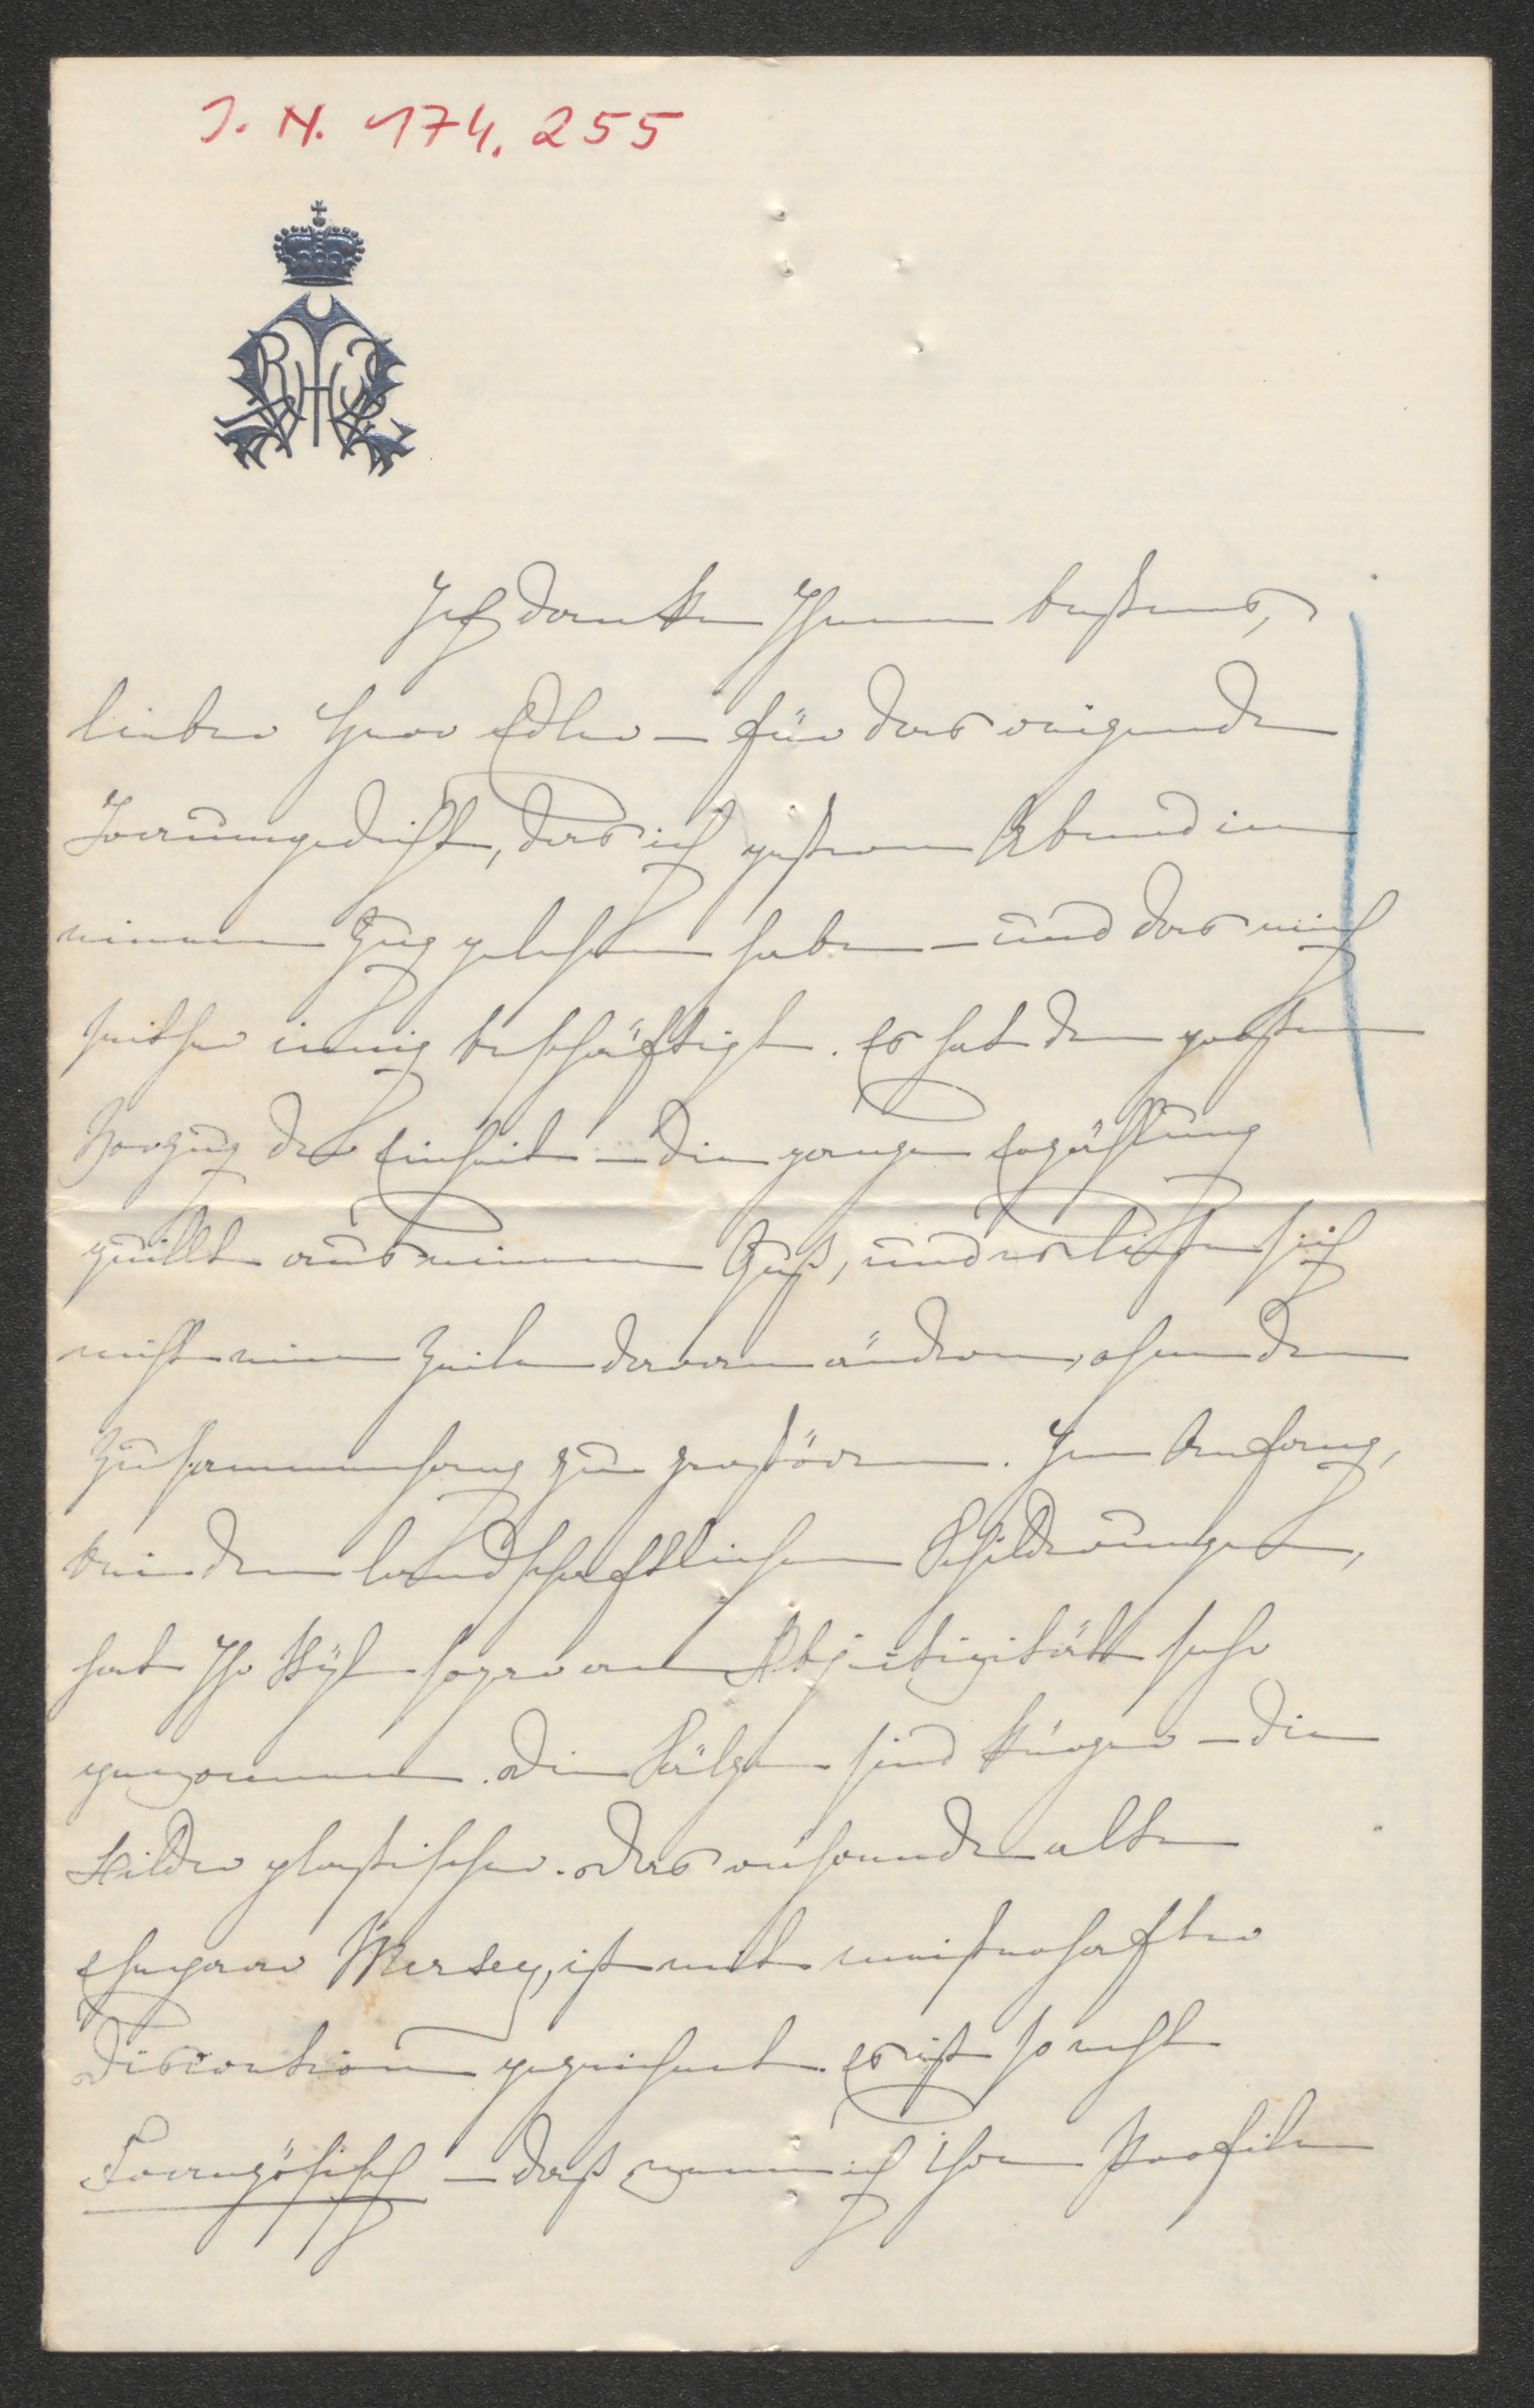 J. N. 174.255
Ich danke Ihnen bestens,
lieber Herr Edler – für das reizende
Traumgedicht, das ich gestern Abend in
einem Zug gelesen habe – und das mich
seither innig beschäftigt. Es hat den großen
Vorzug der Einheit – die ganze Erzählung
quillt aus einem Guß, und es ließe sich
nicht eine Zeile daran ändern, ohne den
Zusammenhang zu zerstören. Im Anfang,
bei den landschaftlichen Schilderungen,
hat Ihr Styl sogar an Objectivität sehr
gewonnen. Die Sätze sind kürzer – die
Bilder plastischer. Das alte
Ehepaar Mersey, ist mit meisterhafter
Discretion gezeichnet. Es ist so recht
Französisch – daß wenn ich Ihre Profile